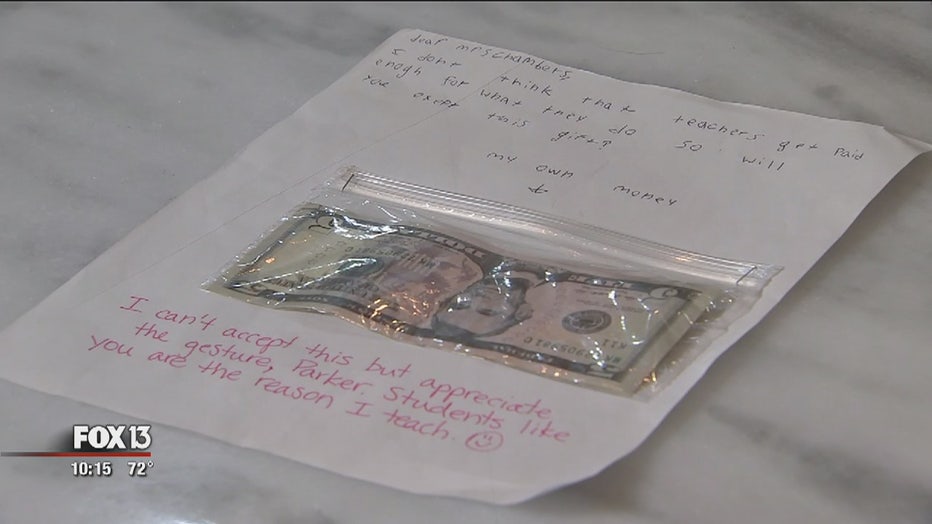 dear mrs chambers,
I dont think that teachers get paid
enogh for what they do so will
you exript this gift?
my own money
↓
I can't accept this but appreciate
the gesture, Parker. Students like
you are the reason I teach. ☺
FOX 13
10:15 72°